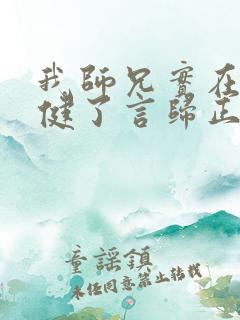 我師兄實在
健了言歸正
童謠鎮
未經同意禁止轉載